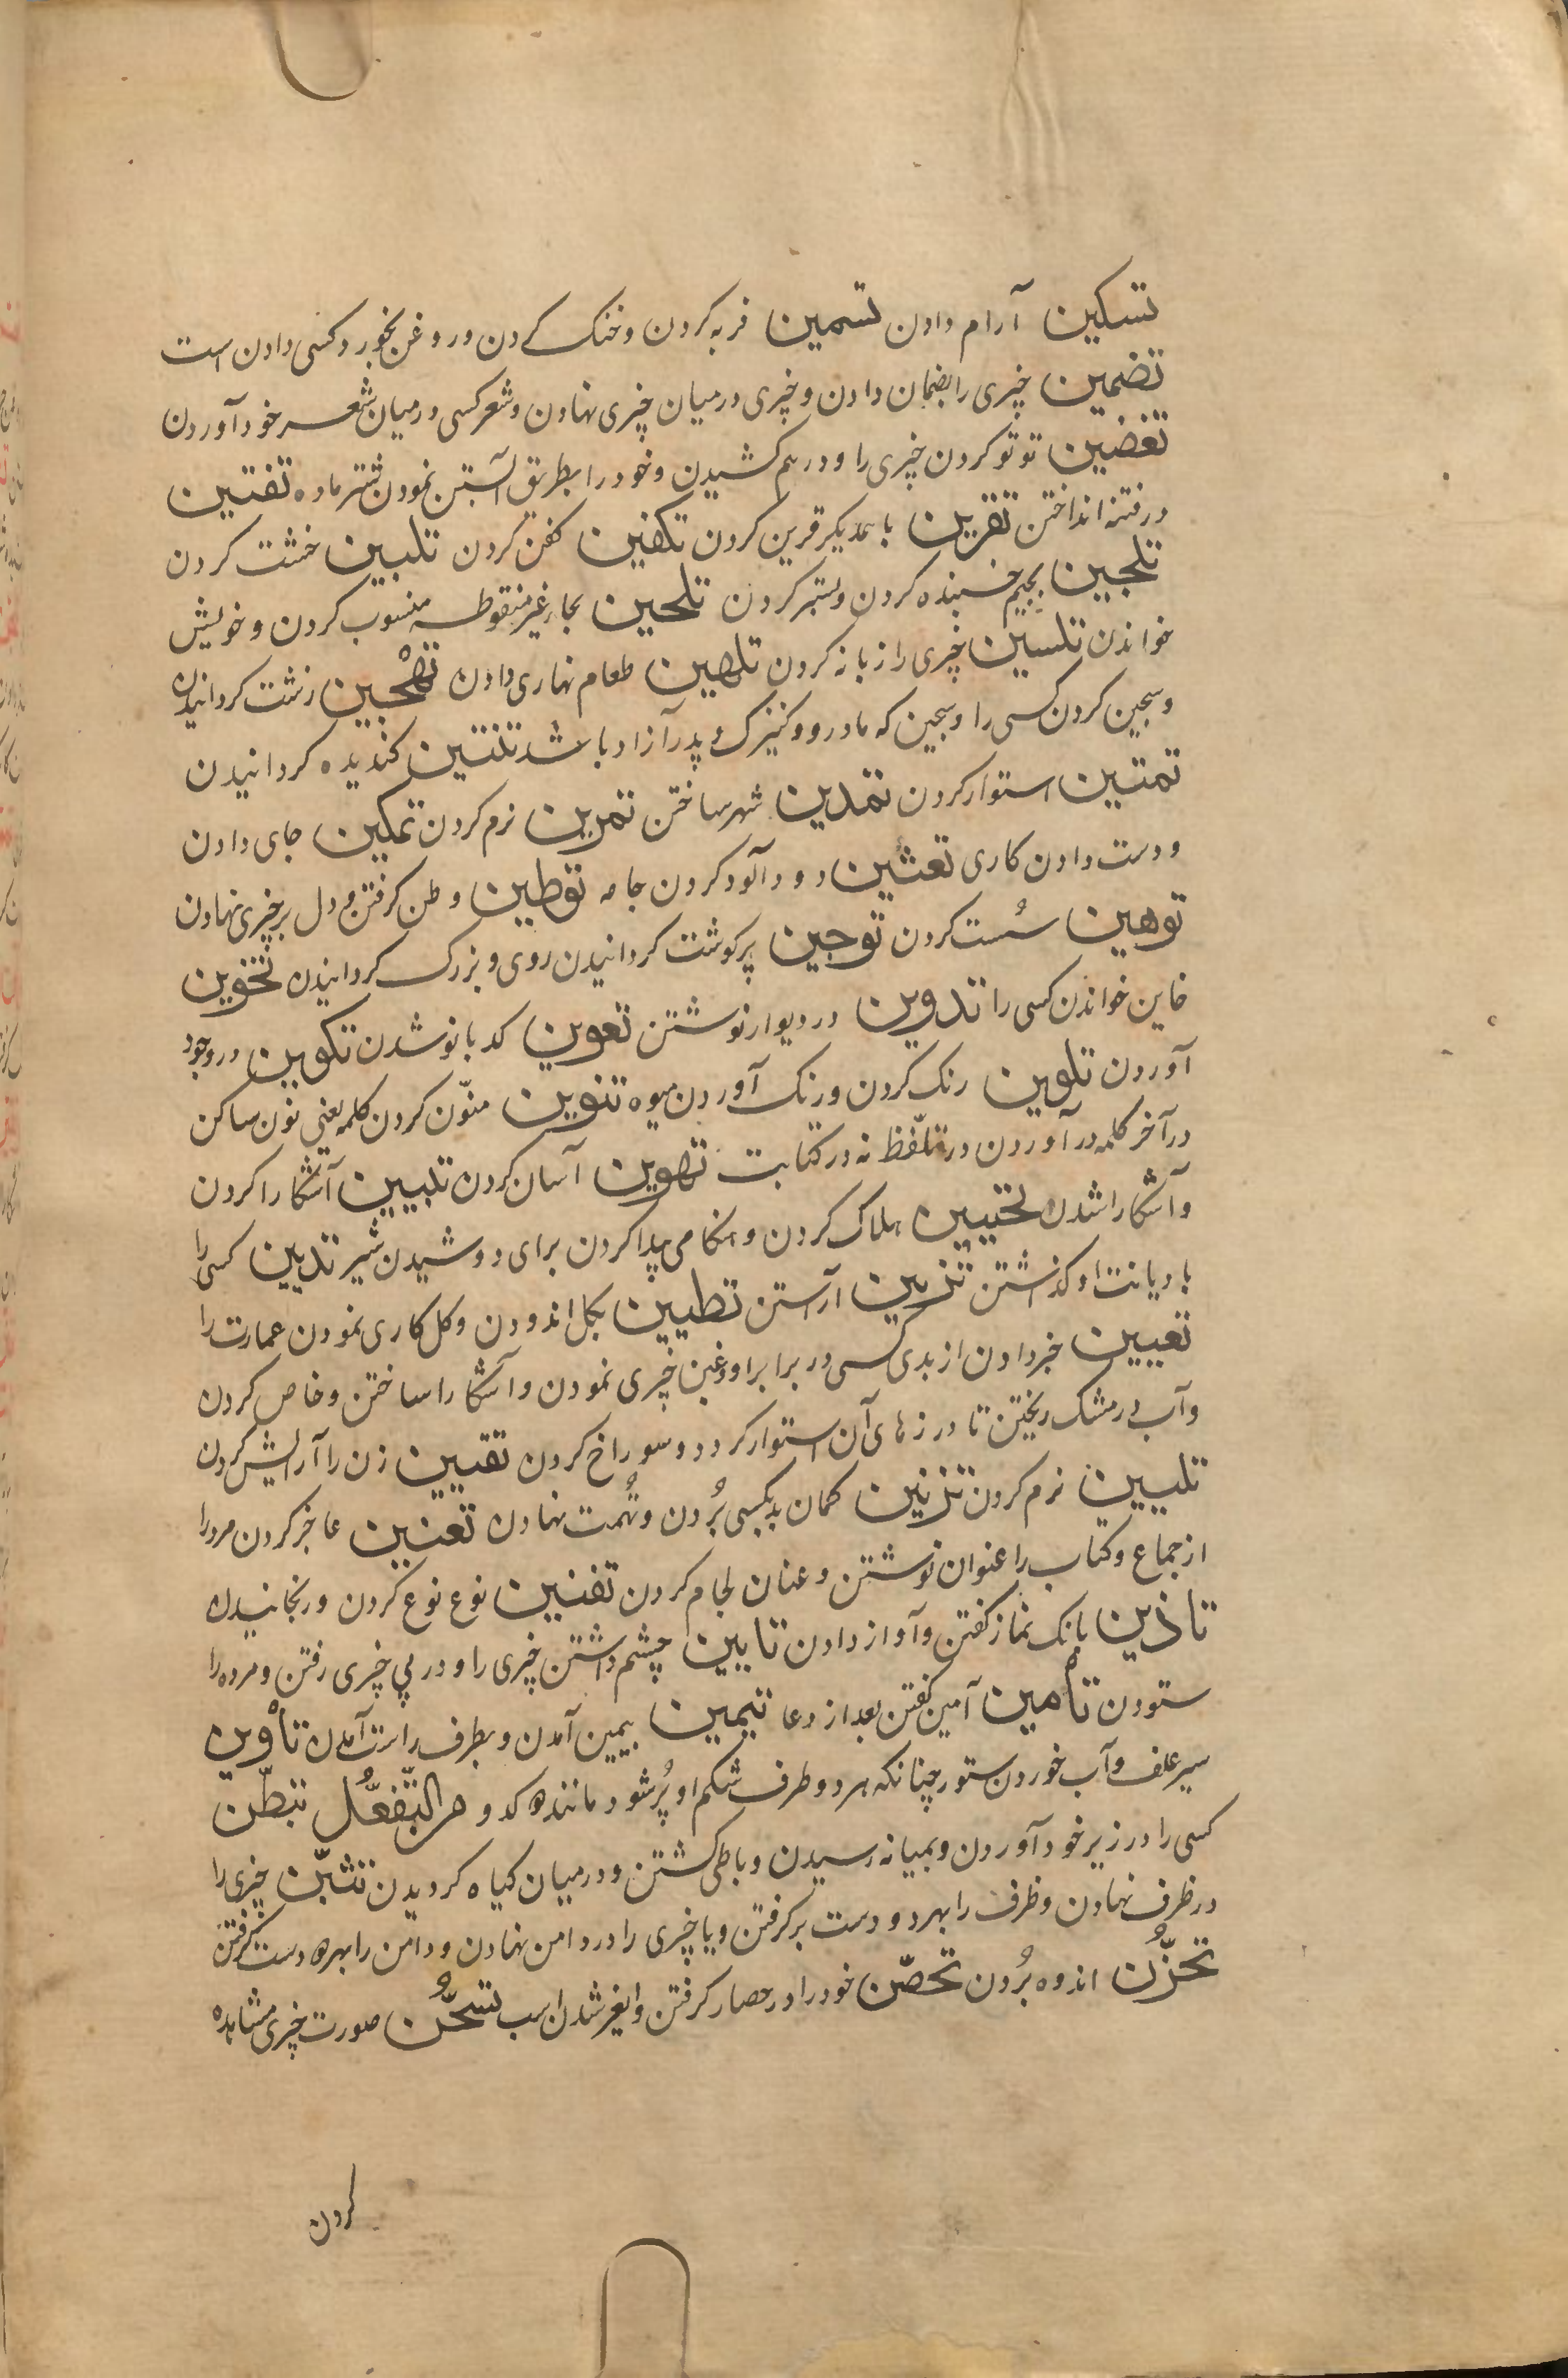 تسکین آرام دادن تسمین فربه کردن و خنک کردن و روغن بخورد کسی دادن است
تضمین چیزی را بضمان دادن و چیزی در میان چیزی نهادن و شعر کسی در میان شعر خود آوردن
تغضین تو تو کردن چیزی را و درهم کشیدن و خود را بطریق آبستن نمودن شتر ماده تفتین
در فتنه انداختن تقرین با همدیکر قرین کردن تکفین کفن کردن تلبین خشت کردن
تلجین بجیم چسبنده کردن و ستبر کردن تلحین بحاء غیر منقوطه منسوب کردن و خویش
خواندن تلسین چیزی را زبانه کردن تلهین طعام نهاری دادن تهْجین زشت کردانیدن
و هجین کردن کسی را و هجین که مادر او کنیزک و پدر آزاد باشد تنتین کندیده کردانیدن
تمتین استوار کردن تمدین شهر ساختن تمرین نرم کردن تمکین جای دادن
و دست دادن کاری تعثین دود آلود کردن جامه توطین وطن کرفتن و دل بر چیزی نهادن
توهین سُست کردن توجین پر کوشت کردانیدن روی و بزرک کردانیدن تخوین
خاین خواندن کسی را تدوین در دیوار نوشتن تعوین کدبانو شدن تکوین در وجود
آوردن تلوین رنک کردن و رنک آوردن میوه تنوین منوّن کردن کلمه یعنی نون ساکن
در آخر کلمه در آوردن در تلّفظ نه در کتابت تهوین آسان کردن تبیین آشکارا کردن
و آشکارا شدن تحیین هلاک کردن و هنکامی پیدا کردن برای دوشیدن شیر تدیین کسی را
با دیانت او کذاشتن تزیین آراستن تطیین بکل اندودن و کل کاری نمودن عمارت را
تعیین خبر دادن از بدی کسی در برابر او و عین چیزی نمودن و آشکارا ساختن و خاص کردن
و آب در مشک ریختن تا درزهای آن استوار کردد و سوراخ کردن تقیین زن را آرایش کردن
تلیین نرم کردن تزنین کمان بد بکسی بُردن و تُهمت نهادن تعنین عاجز کردن مرد را
از جماع و کتاب را عنوان نوشتن و عنان لجام کردن تفنین نوع نوع کردن و رنجانیدن
تاذین بانک نماز کفتن و آواز دادن تابین چشم داشتن چیزی را و در پی چیزی رفتن و مرده را
ستودن تأمین آمین کفتن بعد از دعا تیمین بیمین آمدن و بطرف راست آمدن تأوین
سیر علف و آب خوردن ستور چنانکه هر دو طرف شکم او پُر شود مانند کدو من التّفعُّل تبطّن
کسی را در زیر خود آوردن و بمیانه رسیدن و باطی کشتن و در میان کیاه کردیدن تثبّن چیزی را
در ظرف نهادن و ظرف را بهر دو دست بر کرفتن و یا چیزی را در دامن نهادن و دامن را بهر دو دست کرفتن
تحزُّن اندوه بُردن تحصّن خود را در حصار کرفتن و ایغر شدن اسب تسَحُّن صورت چیزی مشاهده
کردن